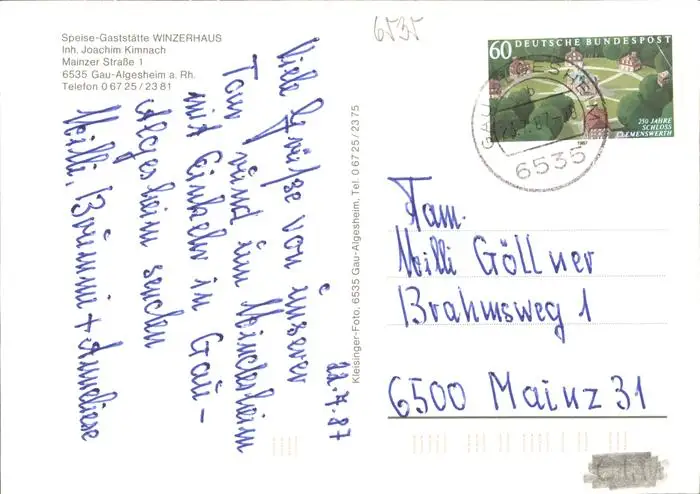 Speise-Gaststätte WINZERHAUS
Inh. Joachim Kimnach
Mainzer Straße 1
6535 Gau-Algesheim a. Rh.
Telefon 0 67 25 / 23 81
6535
22.7.87
Viele Grüße von unserer
Tour rund um Niederheim
mit Einkehr in Gau-
Algesheim senden
Willi, Brunni + Anneliese
Kleisinger-Foto, 6535 Gau-Algesheim, Tel. 0 67 25 / 23 75
60 DEUTSCHE BUNDESPOST
250 JAHRE
SCHLOSS
CLEMENSWERTH
1987
GAU-ALGESHEIM
6535
Fam.
Willi Göllner
Brahmsweg 1
6500 Mainz 31